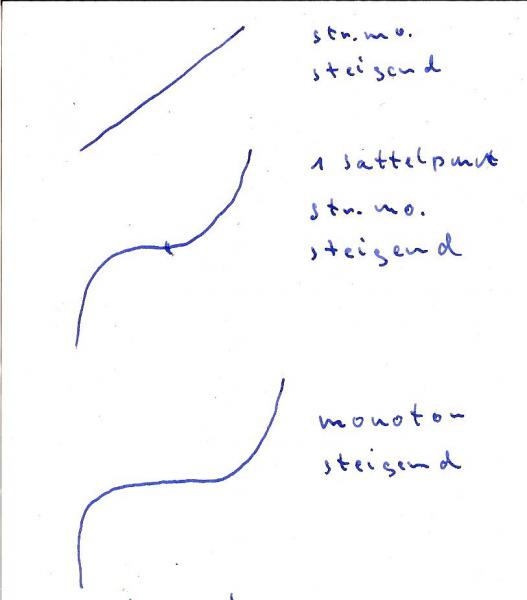 str. mo.
steigend
1 Sattelpunkt
str. mo.
steigend
monoton
steigend